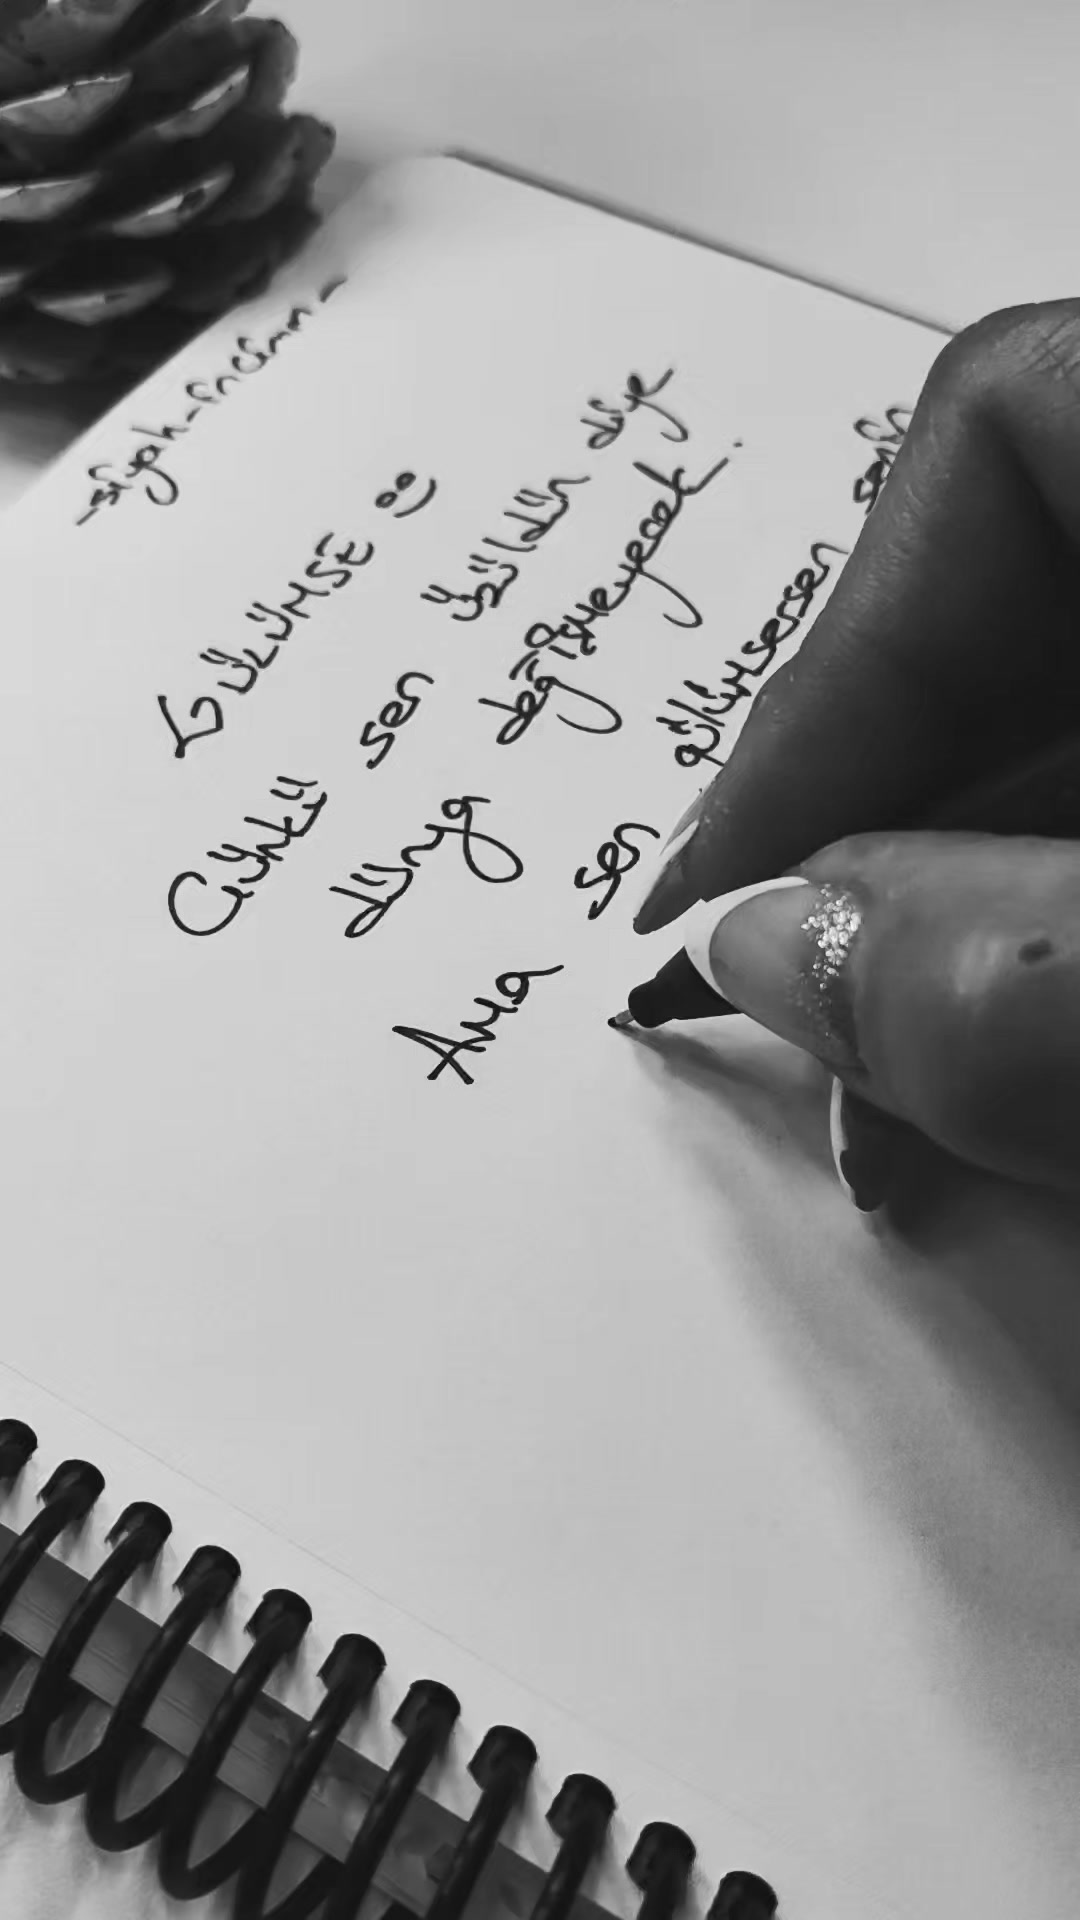 -siyah-incimm-
GÜLÜMSE :)
Çünkü sen üzüldün diye
dünya değişmeyecek.
Ama sen gülümsersen senin